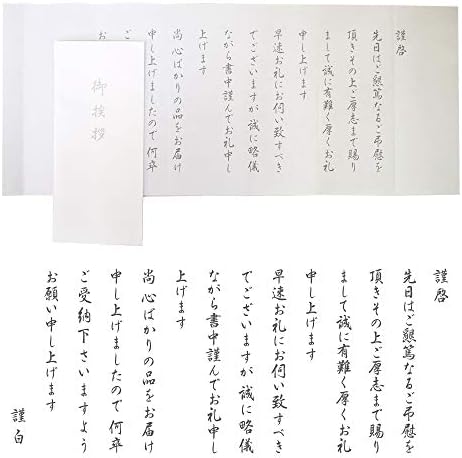 謹啓
先日はご懇篤なるご弔慰を
頂きその上ご厚志まで賜り
まして誠に有難く厚くお礼
申し上げます
早速お礼にお伺い致すべき
でございますが誠に略儀
ながら書中謹んでお礼申し
上げます
尚心ばかりの品をお届け
申し上げましたので何卒
ご
お
御挨拶
謹啓
先日はご懇篤なるご弔慰を
頂きその上ご厚志まで賜り
まして誠に有難く厚くお礼
申し上げます
早速お礼にお伺い致すべき
でございますが誠に略儀
ながら書中謹んでお礼申し
上げます
尚心ばかりの品をお届け
申し上げましたので何卒
ご受納下さいますよう
お願い申し上げます
謹白